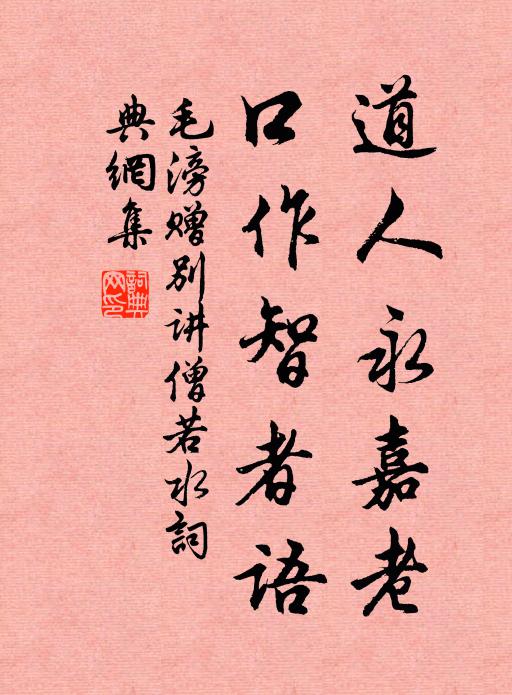 道人永嘉老
口作智者语
毛滂赠别讲僧若水詞
典網集
詞典网印